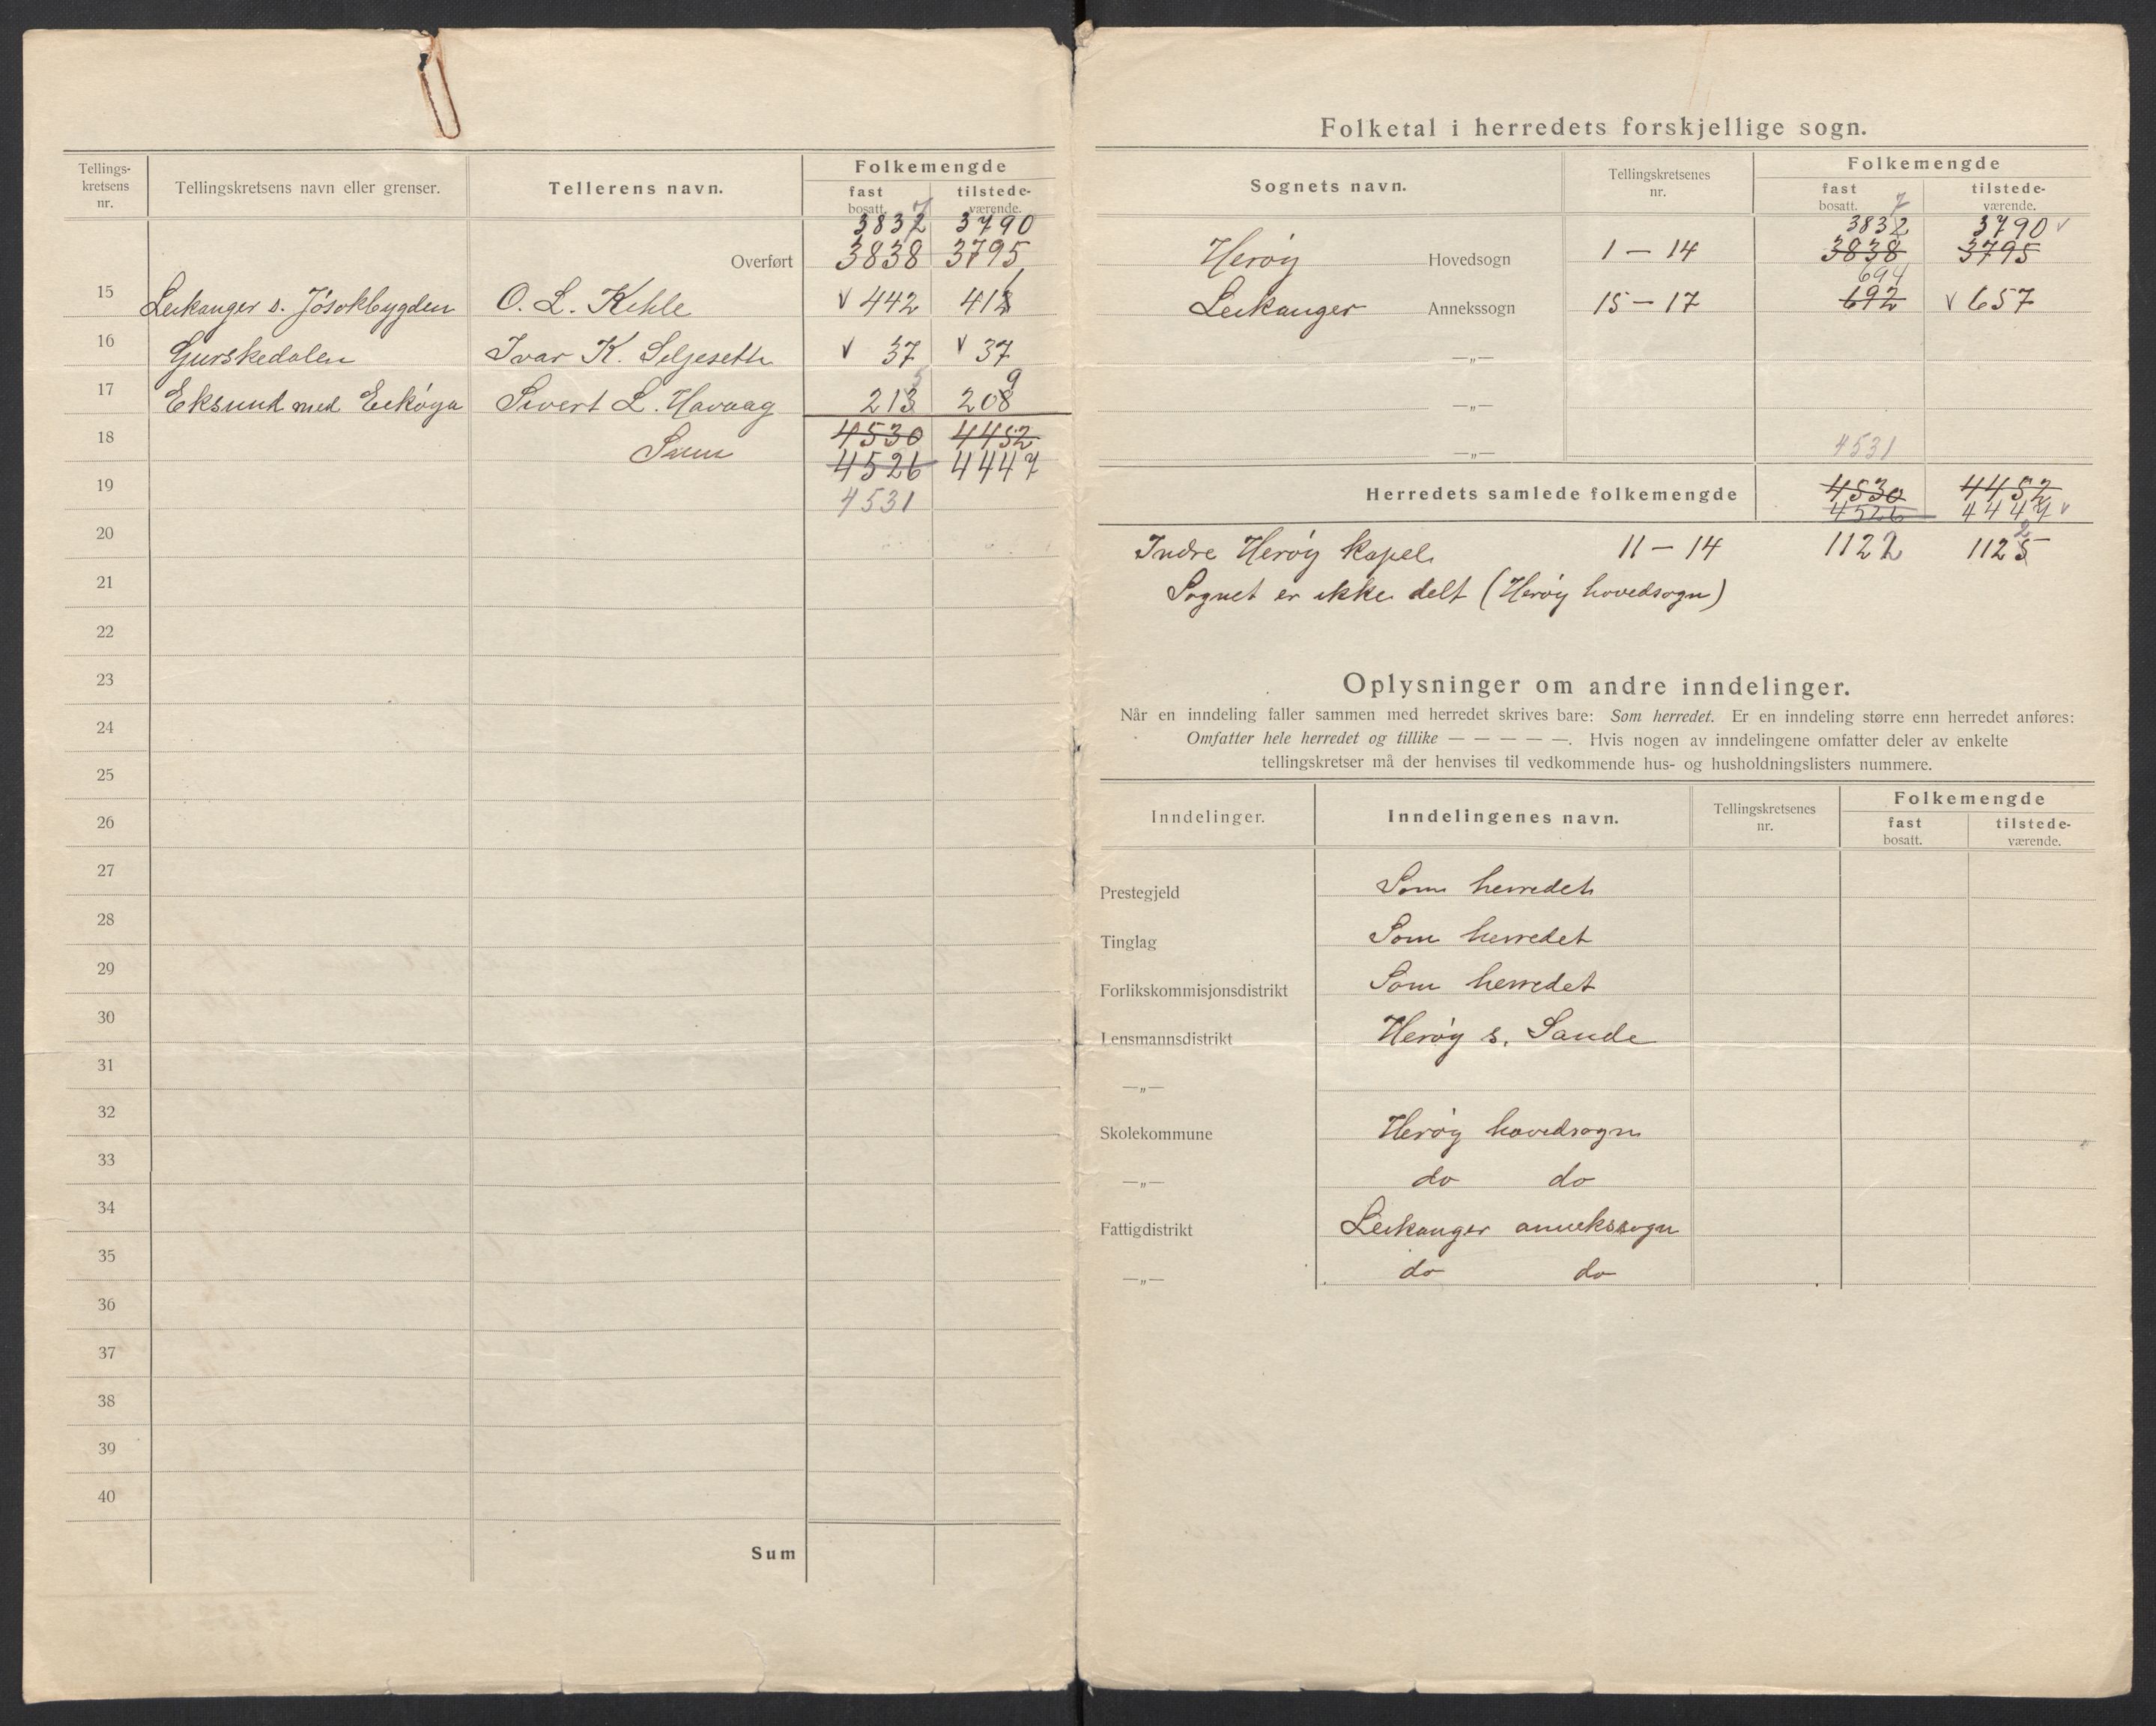 Tellings-
kretsens
nr.
Tellingskretsens navn eller grenser.
Tellerens navn.
Folkemengde
fast
bosatt.
tilstede-
værende.
7
3832 3790
Overført 3838 3795
15 Leikanger s. Jøsokbygden O. L. Kihle v 442 412
16 Gurskedalen Ivar K. Seljeseth v 37 v 37
5 9
17 Eksund med Eikøya Sivert L. Havaag 213 208
18 Sum 4530 4452
4526 4447
19 4531
20
21
22
23
24
25
26
27
28
29
30
31
32
33
34
35
36
37
38
39
40
Sum
Folketal i herredets forskjellige sogn.
Sognets navn.
Tellingskretsenes
nr.
Folkemengde
fast
bosatt.
tilstede-
værende.
7
3832 3790 v
Herøy Hovedsogn 1 — 14 3838 3795
694
Leikanger Annekssogn 15 — 17 692 v 657
—„—
—„—
—„— 4531
Herredets samlede folkemengde 4530 4452
4526 4447 v
2
Indre Herøy kapel. 11 — 14 1122 1125
Sognet er ikke delt (Herøy hovedsogn)
Oplysninger om andre inndelinger.
Når en inndeling faller sammen med herredet skrives bare: Som herredet. Er en inndeling større enn herredet anføres:
Omfatter hele herredet og tillike — — — — —. Hvis nogen av inndelingene omfatter deler av enkelte
tellingskretser må der henvises til vedkommende hus- og husholdningslisters nummere.
Inndelinger.
Inndelingenes navn.
Tellingskretsenes
nr.
Folkemengde
fast
bosatt.
tilstede-
værende.
Prestegjeld Som herredet
Tinglag Som herredet
Forlikskommisjonsdistrikt Som herredet
Lensmannsdistrikt Herøy s. Sande
—„—
Skolekommune Herøy hovedsogn
—„— do do
Fattigdistrikt Leikanger annekssogn
—„— do do